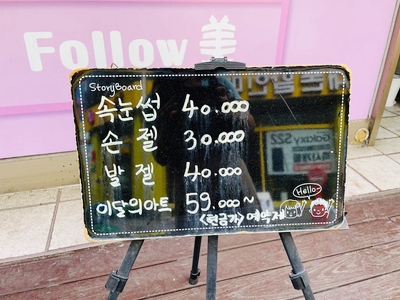 Follow 美
StoryBoard
속눈썹 40.000
손 젤 30.000
발 젤 40.000
이달의아트 59.000~
<현금가> 예약제
Hello~
Galaxy S22